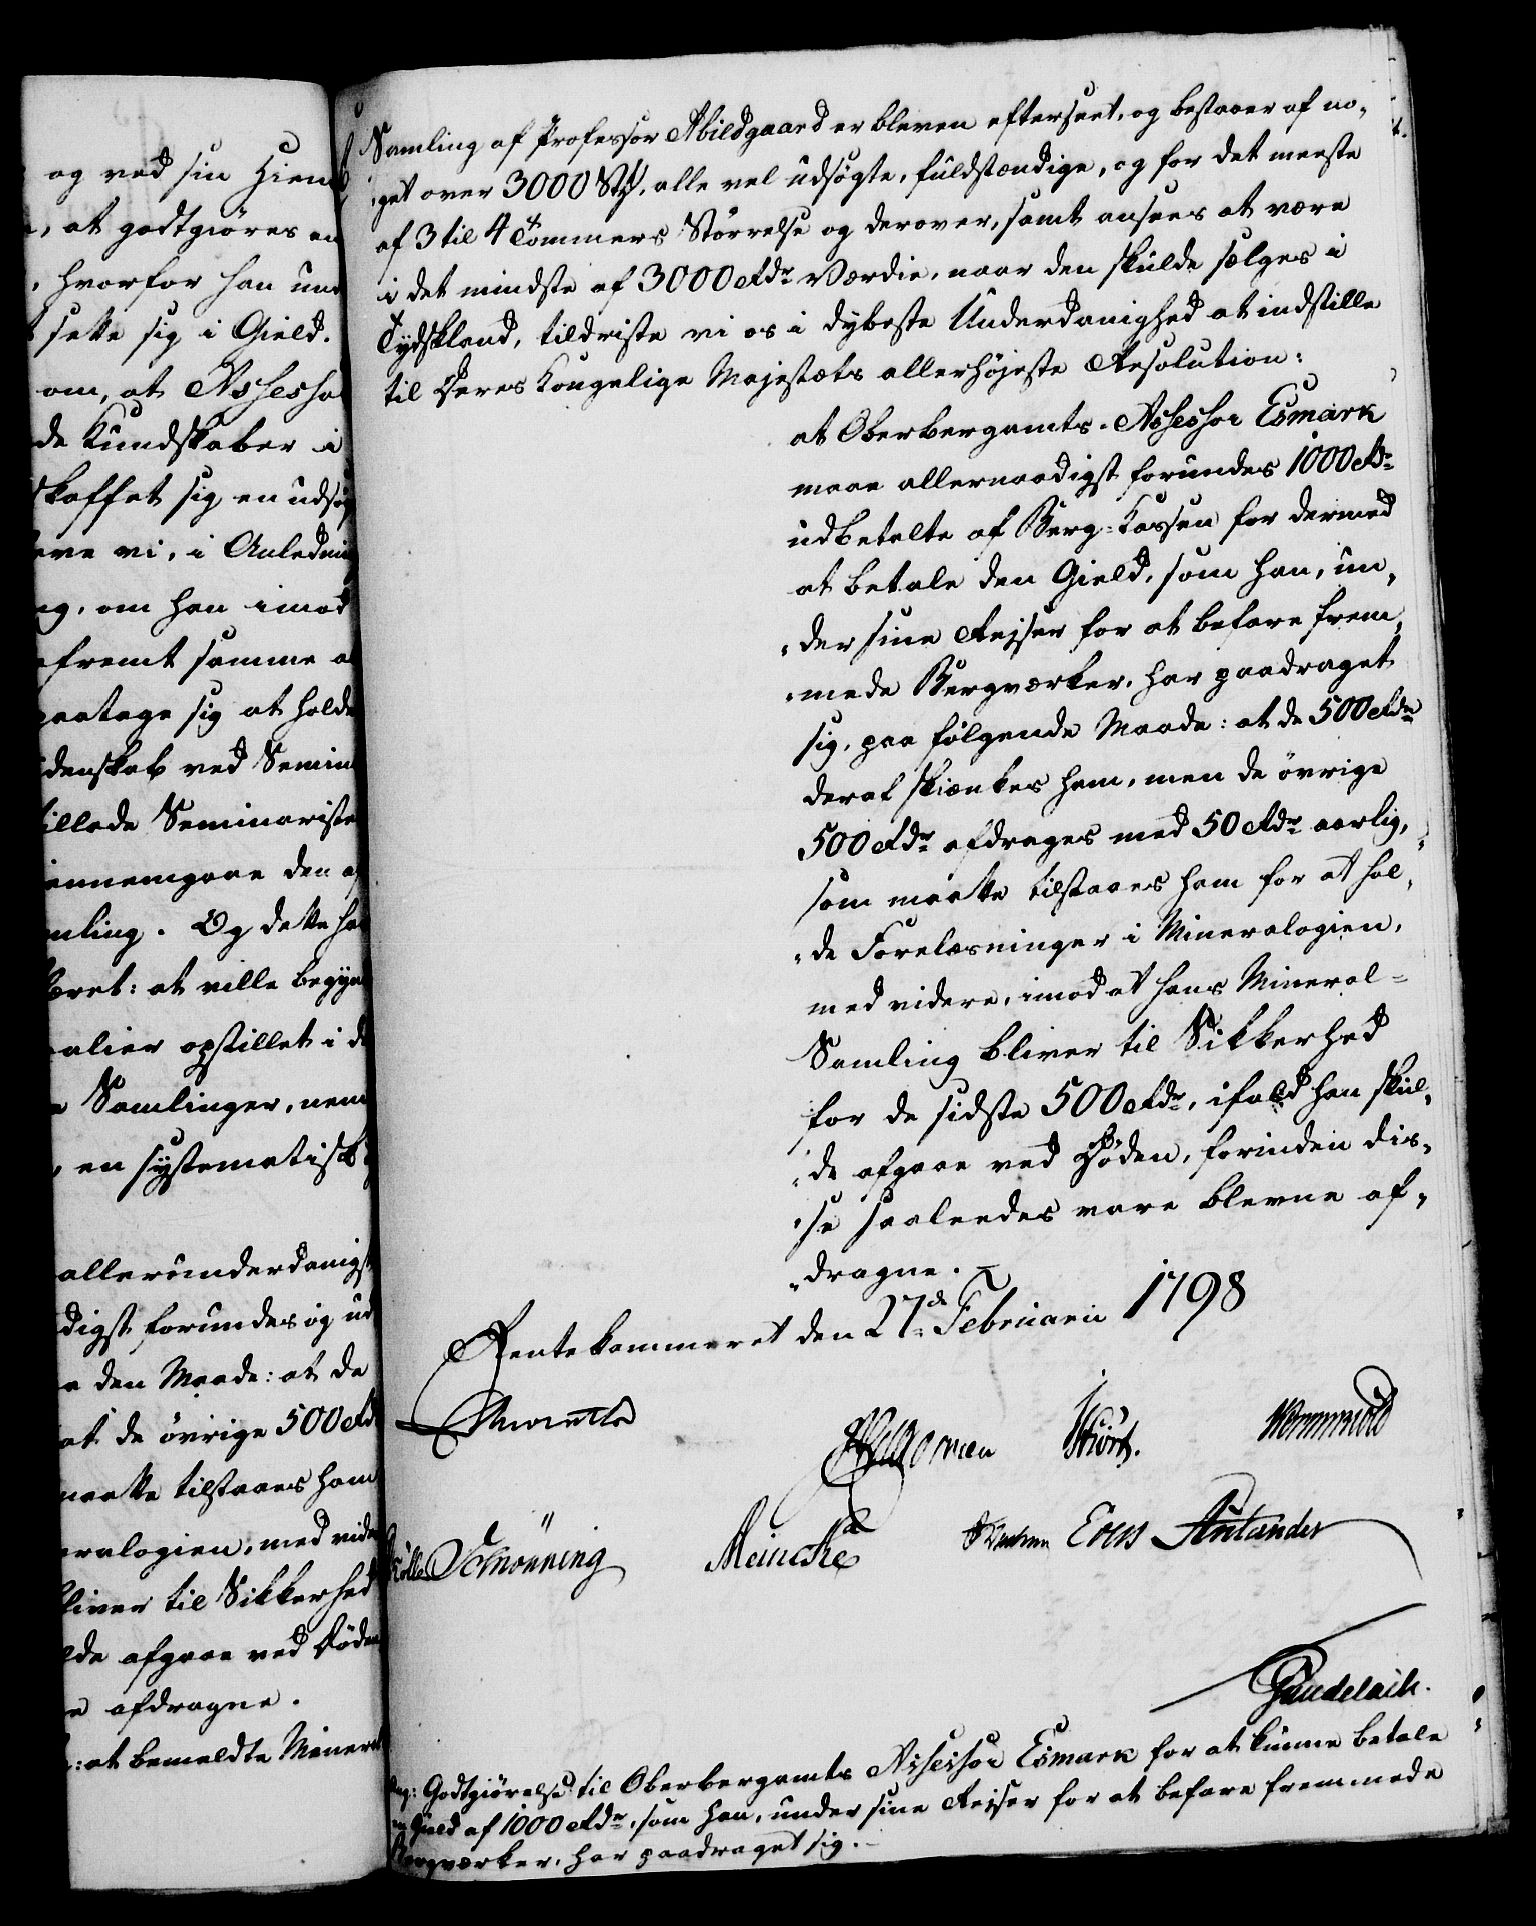 og ved sin Hiem
, at godtgiøres en
, hvorfor han und
sette sig i Gield.
om, at Assesso
de Kundskaber i
skaffet sig en udsøg
eve vi, i Anledni
ng, om han imod
fremt samme a
paatage sig at holde
denskab ved Semin
tillade Seminariste
iennemgaae den af
mling. Og dette ha
læret: at ville begyn
alier opstillet i d
e Samlinger, nem
, en systematisk
allerunderdanigst
digst forundes og ud
e den Maade: at de
at de övrige 500 Rd
maatte tilstaaes ham
eralogien, med vide
bliver til Sikkerhed
lde afgaae ved Döden
e afdragne.
: at bemeldte Mineral
Samling af Professor Abildgaard er bleven efterseet, og bestaaer af no-
get over 3000 Stk, alle vel udsøgte, fuldstændige, og for det meeste
af 3 til 4 Tommers Störrelse og derover, samt ansees at være
i det mindste af 3000 Rdr Værdie, naar den skulde sælges i
Tydskland, tildriste vi os i dybeste Underdanighed at indstille
til Deres Kongelige Majestæts allerhöjeste Resolution:
at Oberbergamts-Assessor Esmark
maae allernaadigst forundes 1000 Rdr
udbetalte af Berg-Kassen for dermed
at betale den Gield, som han, un-
der sine Rejser for at befare frem-
mede Bergværker, har paadraget
sig, paa fölgende Maade: at de 500 Rdr
deraf skiænkes ham, men de övrige
500 Rdr afdrages med 50 Rdr aarlig,
som maatte tilstaaes ham for at hol-
de Forelæsninger i Mineralogien,
med videre, imod at hans Mineral-
Samling bliver til Sikkerhed
for de sidste 500 Rdr, ifald han skul-
de afgaae ved Döden, forinden dis-
se saaledes vare blevne af-
dragne.
Rentekammeret den 27de Februarii 1798
Schönning Meincke Antander
Gudelach.
ang: Godtgiörelse til Oberbergamts Assessor Esmark for at kunne betale
en Gield af 1000 Rdr, som han, under sine Rejser for at befare fremmede
Bergværker, har paadraget sig.